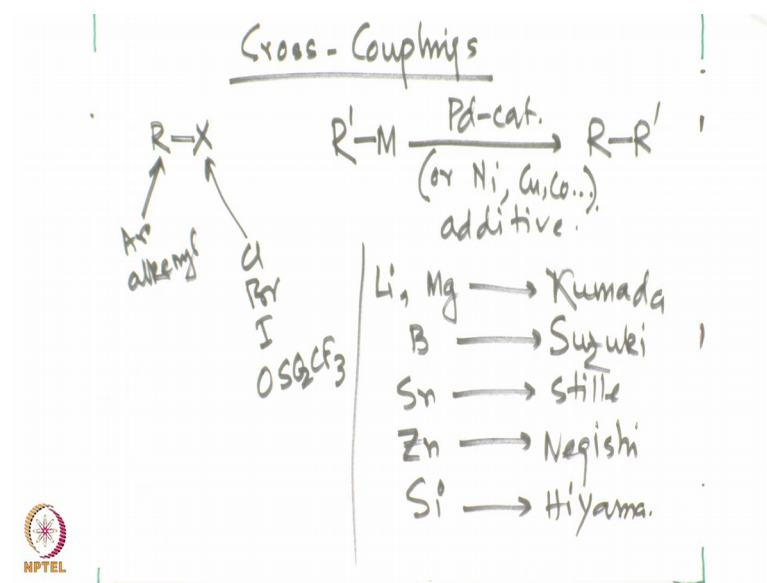 Cross-Couplings
R-X R'-M Pd-cat. → R-R'
(or Ni, Cu, Co...)
additive.
Ar
alkenyl
Cl
Br
I
OSO2CF3
Li, Mg → Kumada
B → Suzuki
Sn → Stille
Zn → Negishi
Si → Hiyama.
NPTEL